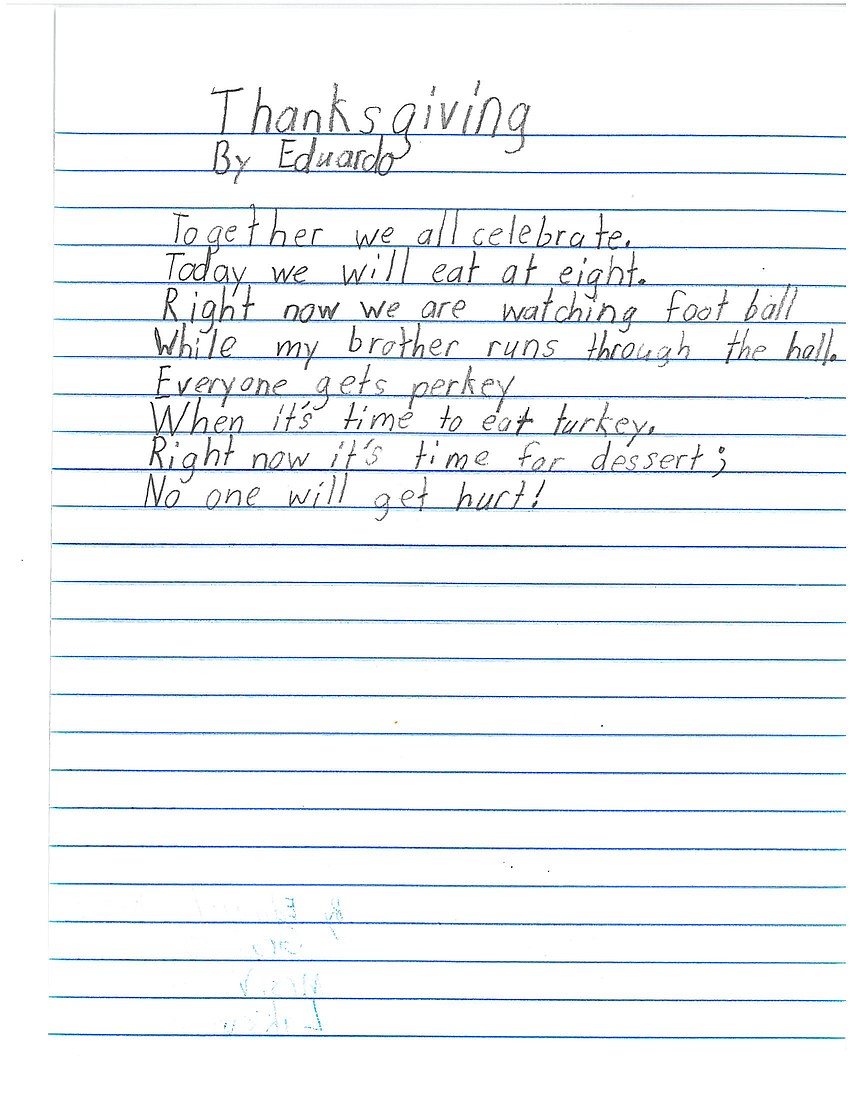 Thanksgiving
By Eduardo
Together we all celebrate.
Today we will eat at eight.
Right now we are watching foot ball
While my brother runs through the hall.
Everyone gets perkey
When it's time to eat turkey.
Right now it's time for dessert;
No one will get hurt!